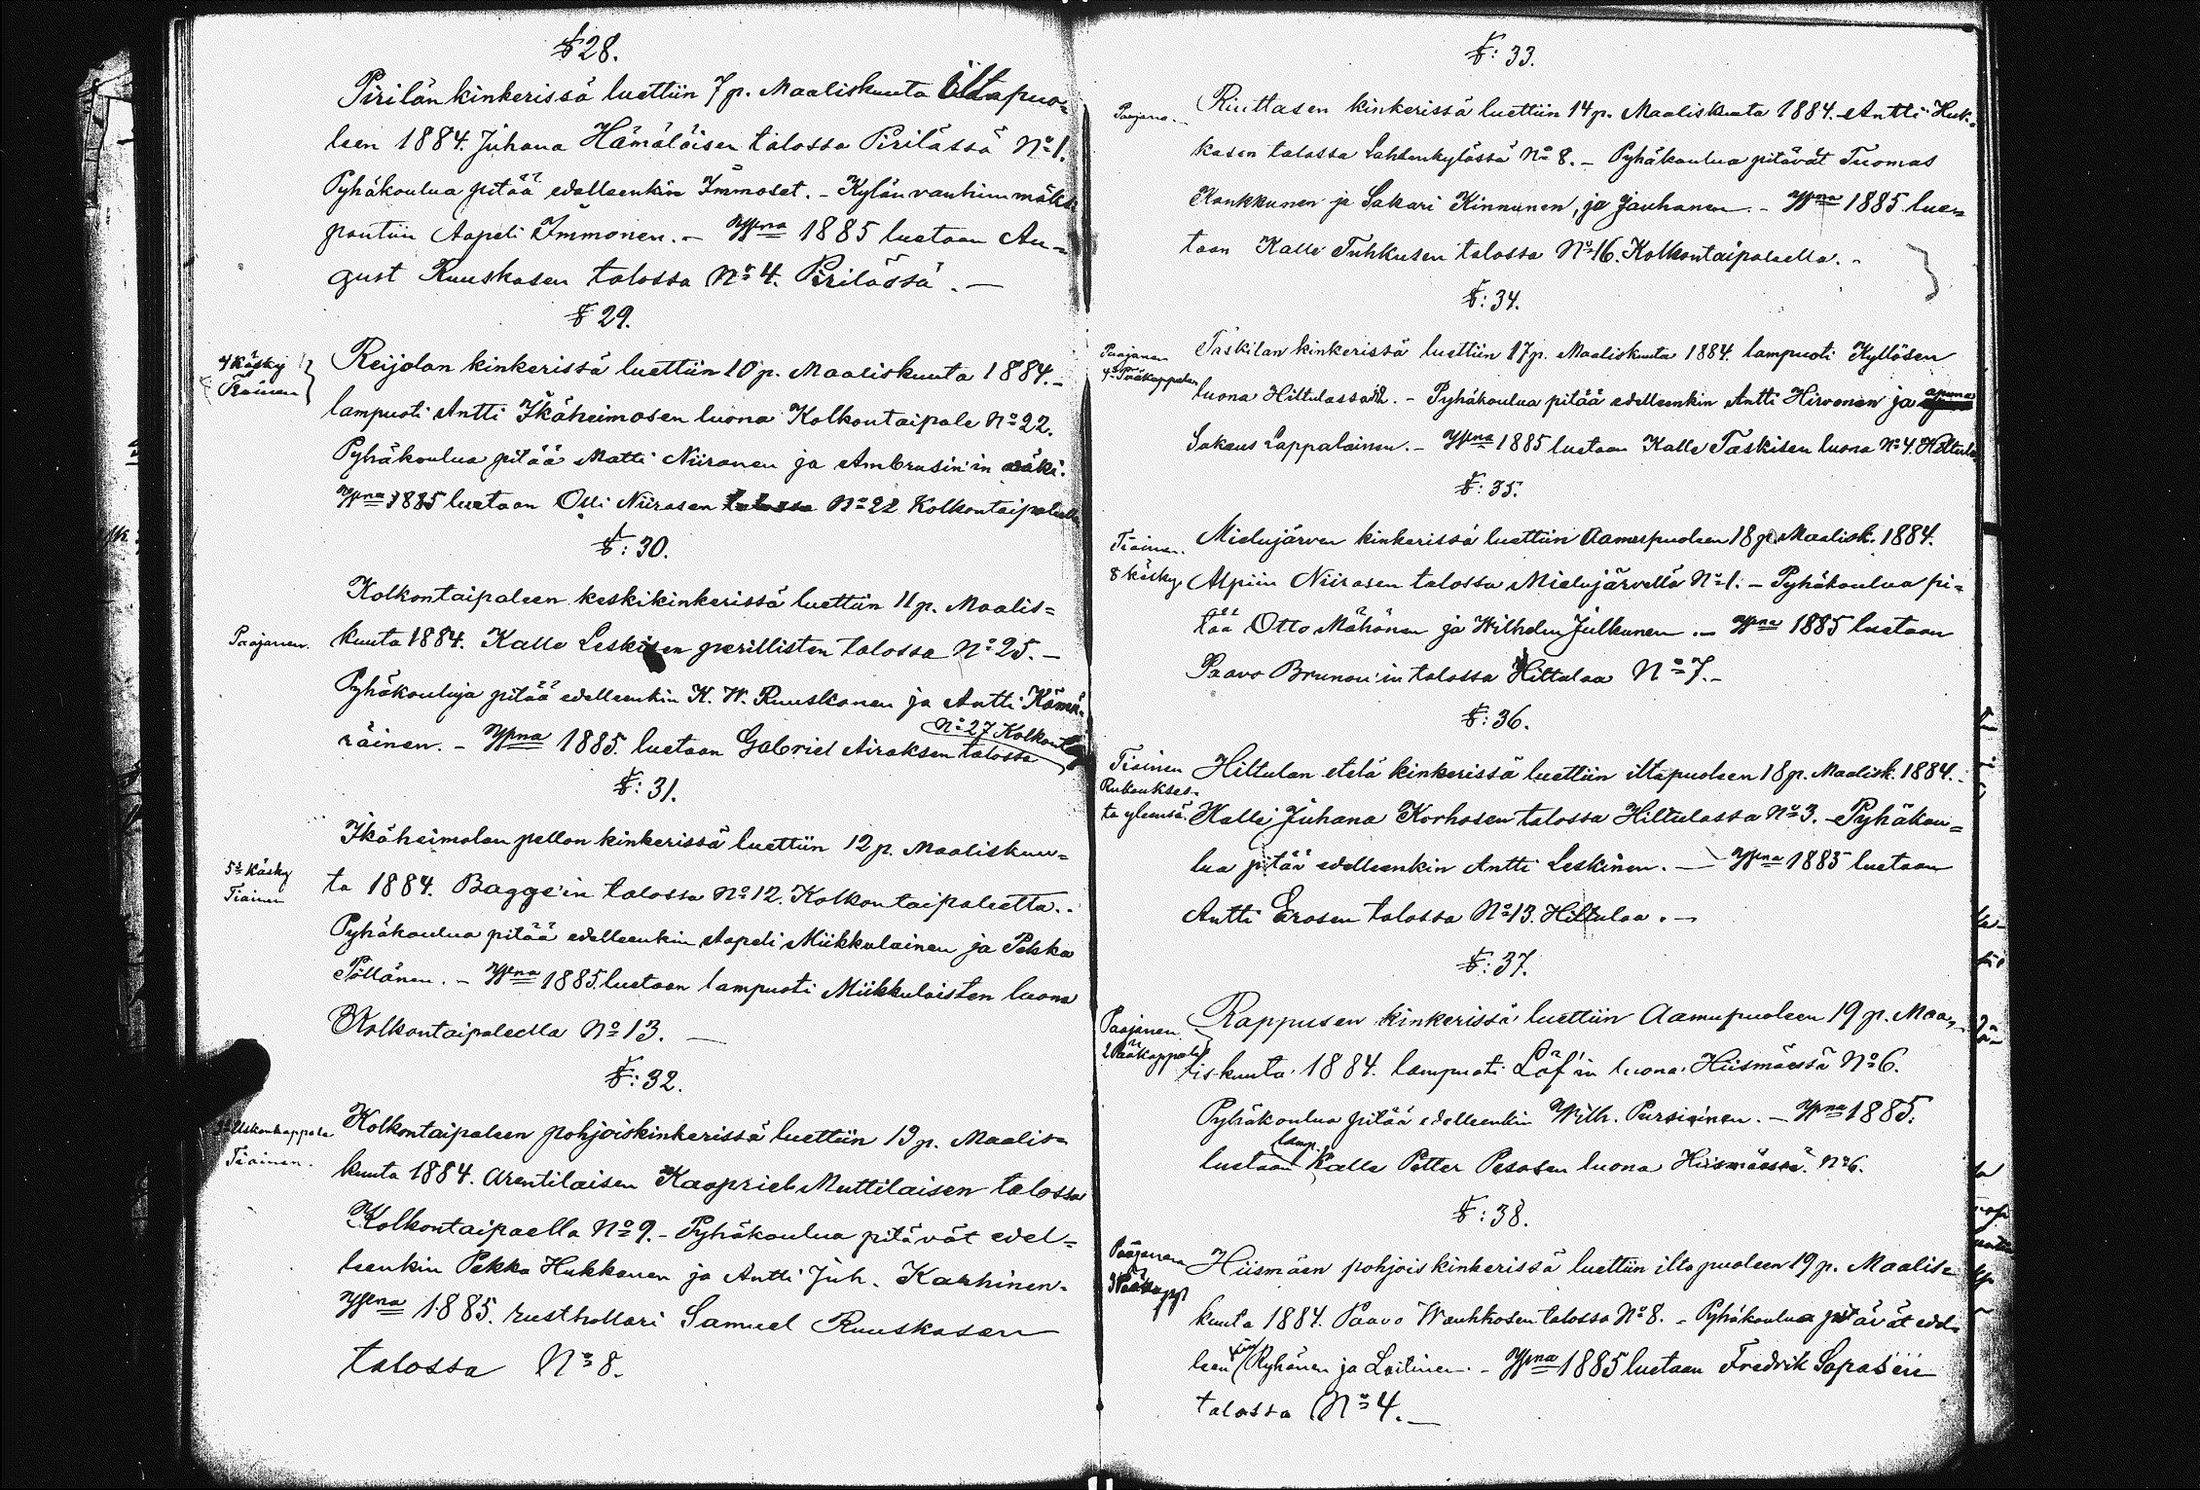 § 28.
Pirilän kinkerissä luettiin 7 p. Maaliskuuta Iltapuo=
leen 1884. Juhana Hämäläisen talossa Pirilässä No 1.
Pyhäkoulua pitää edelleenkin Immoset. - Kylänvanhimmäksi
pantiin Aapeli Immonen. - Wna 1885 luetaan Au=
gust Ruuskasen talossa No 4. Pirilässä. -
§ 29.
4 Käsky
Tiainen
Reijolan kinkerissä luettiin 10 p. Maaliskuuta 1884. -
lampuoti Antti Ikäheimosen luona Kolkontaipale No 22.
Pyhäkoulua pitää Matti Niiranen ja Ambrusin'in väki.
Wna 1885 luetaan Olli Niirasen talossa No 22 Kolkontaipaleella
§: 30.
Kolkontaipaleen keskikinkerissä luettiin 11 p. Maalis=
Paajanen. kuuta 1884. Kalle Leskisen perillisten talossa No 25. -
Pyhäkouluja pitää edelleenkin K. W. Ruuskanen ja Antti Kämä=
räinen. - Wna 1885. luetaan Gabriel Airaksen talossa
No 27 Kolkont
§: 31.
Ikäheimolan pellon kinkerissä luettiin 12 p. Maaliskuu=
5s Käsky
Tiainen
ta 1884. Bagge'in talossa No 12. Kolkontaipaletta. -
Pyhäkoulua pitää edelleenkin Aapeli Miikkulainen ja Pekka
Pöllänen. - Wna 1885 luetaan lampuoti Miikkulaisten luona
Kolkontaipaleella No 13. -
§: 32.
Uskonkappale
Tiainen.
Kolkontaipaleen pohjoiskinkerissä luettiin 13 p. Maalis=
kuuta 1884. Arentilaisen Kaapriel Muttilaisen talossa
Kolkontaipaella No 9. - Pyhäkoulua pitävät edel=
leenkin Pekka Hukkanen ja Antti Juh. Karhinen.
Wna 1885. rusthollari Samuel Ruuskasen
talossa No 8.
§: 33.
Paajane. - Riuttasen kinkerissä luettiin 14 p. Maaliskuuta 1884. Antti Huk=
kasen talossa Lahdenkylässä No 8. - Pyhäkoulua pitävät Tuomas
Konkkunen ja Sakari Kinnunen, ja Jauhanen. - Wna 1885. lue=
taan Kalle Tuhkusen talossa No 16. Kolkontaipaleella. -
§: 34.
Paajanen
Pääkappalen
Taskilan kinkerissä luettiin 17 p. Maaliskuuta 1884. lampuoti Kyllösen
luona Hiltulassa. - Pyhäkoulua pitää edelleenkin Antti Hirvonen ja apuna
Sakeus Lappalainen. - Wna 1885 luetaan Kalle Taskisen luona No 4. Hiltula
§: 35.
Tiainen.
8 käsky
Mielujärven kinkerissä luettiin Aamupuoleen 18 p. Maalisk. 1884.
Alpiin Niirasen talossa Mielujärvellä No 1. - Pyhäkoulua pi=
tää Otto Mähönen ja Wilhelm Julkunen. - Wna 1885 luetaan
Paavo Brunou'in talossa Hiltulaa No 7. -
§: 36.
Tiainen
Rukoukses=
ta yleensä.
Hiltulan etelä kinkerissä luettiin iltapuoleen 18 p. Maalisk. 1884. -
Kalle Juhana Korhosen talossa Hiltulassa No 3. - Pyhäkou=
lua pitää edelleenkin Antti Leskinen. - Wna 1885 luetaan
Antti Erosen talossa No 13. Hiltulaa. -
§: 37.
Paajanen
2 Pääkappale
Rappusen kinkerissä luettiin Aamupuoleen 19 p. Maa=
liskuuta 1884. lampuoti Löf'in luona Hiismäessä No 6.
Pyhäkoulua pitää edelleenkin Wilh. Pursiainen. - Wna 1885.
luetaan lamp. Kalle Petter Pesosen luona Hiismäessä. No 6.
§: 38.
Paajanen
3 Pääkapp
Hiismäen pohjoiskinkerissä luettiin iltapuoleen 19 p. Maalis=
kuuta 1884. Paavo Wauhkosen talossa No 8. - Pyhäkoulua pitävät edel=
leenkin Ryhänen ja Laitinen. - Wna 1885 luetaan Fredrik Sopasen
talossa No 4. -